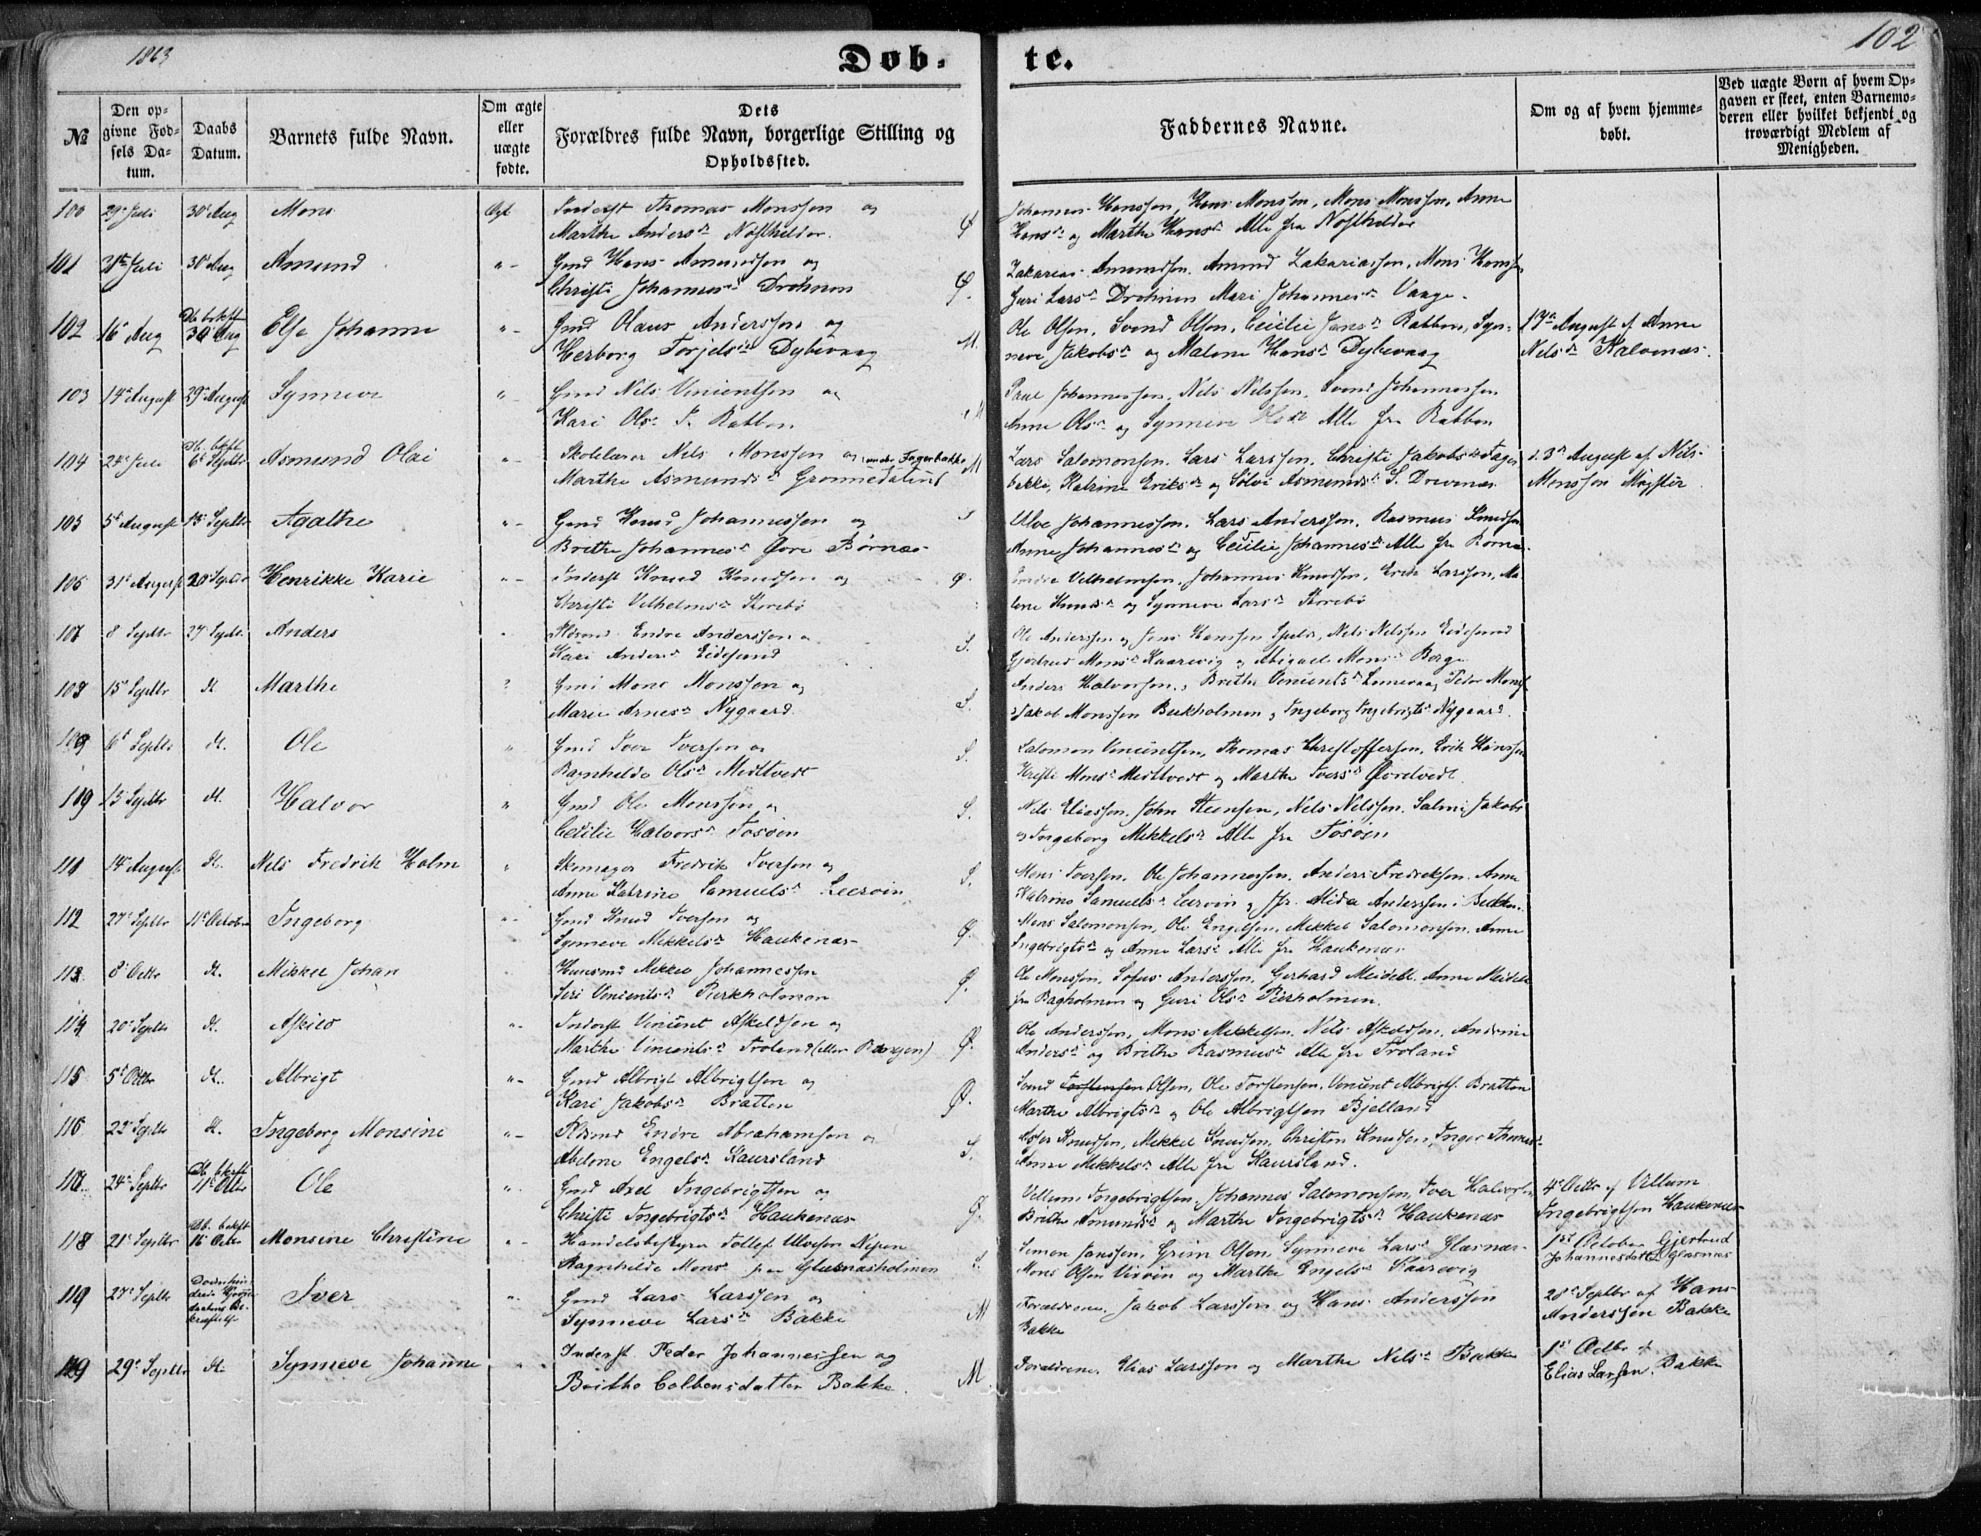 1863
102
Døb-
te.
№
Den op-
givne Fød-
sels Da-
tum.
Daabs
Datum.
Barnets fulde Navn.
Om ægte
eller
uægte
fødte.
Dets
Forældres fulde Navn, borgerlige Stilling og
Opholdssted.
Faddernes Navne.
Om og af hvem hjemme-
døbt.
Ved uægte Børn af hvem Op-
gaven er skeet, enten Barnemo-
deren eller hvilket bekjendt og
troværdigt Medlem af
Menigheden.
100 29 Juli 30 Aug Mons Ægt Inderst Thomas Monssen og
Marthe Andersdr
Johannes Hanssen, Hans Monsen, Mons Monssen, Anne
Hansdr og Marthe Hansdr Alle fra
101 Juli 30 Aug Amund Gmd Hans Amundsen og
Christi Johannesdr Drønen Ø.
Zakarias Amundsen, Amund Zakariassen, Mons Hanssen
Guri Larsdr Drønen Mari Johannesdr Vaage.
102 16 Aug 30 Aug Else Johanne Gmd Olaus Anderssen og
Herborg Torjelsdr Dybevaag M.
Ole Olsen, Svend Olsen, Cecilie Jansdr Rabben, Syn-
neve Jakobsdr og Malene Hansdr Dybevaag
17de August af Anne
Nelsdr Kalvenæs.
103 14 August 29 August Synneve Gmd Nils Vincentsen og
Kari Olsdr Rabben M
Johannessen, Nils Nilssen, Svend Johannessen
Anne Olsdr og Synneve Olsdr Alle fra Rabben
104 24 Juli 6 Septbr Asmund Olai Skolelærer Nels Monssen og
Marthe Asmundsdr Grønnedalen M
Lars Salomonsen, Lars Larssen, Christi Jakobsdr Fager
bakke, Katrine Eriksdr og Sølvi Asmundsdr
d. 3 August af Nils
Monssen Møgster
105 5 August 13 Septbr Agathe Gmd Knud Johannessen og
Brithe Johannesdr Øvre Børnæs
Johannessen, Lars Anderssen, Rasmus Knudsen
Anne Johannesdr og Cecilie Johannesdr Alle fra
106 31 August 20 Septbr Henrikke Karie Inderst Knud Knudsen og
Christi Vilhelmsdr Storebø
Vilhelmsen, Johannes Knudsen, Erik Larssen, Ma-
lene Knudsdr og Synneve Larsdr Storebø
107 8 Septbr 27 Septbr Anders Endre Anderssen og
Kari Andersdr Eidesund S.
Ole Anderssen og Jens Hanssen, Nels Nelssen Eidesund
Gjertrud Monsdr Kaarevig og Abigael Monsdr Berge
108 15 Septbr dt Marthe Gmd Mons Monssen og
Marie Arnesdr Nygaard. S.
Anders Halvorsen, Brithe Vincentsdr Peder Mons
Jakob Monssen Bukholmen og Ingeborg Ingebrigtsdr Nygaard.
109 6 Septbr dt. Ole Gmd Iver Iversen og
Ragnhilde Olsdr Midttvedt S.
Salomon Vincentsen, Thomas Christoffersen, Erik Hanssen
Kristi Monsdr Midttvedt og Marthe Iversdr Øvretvedt.
13 Septbr dt. Halvor Gmd Ole Monssen og
Cecilie Halvorsdr Tosøen S.
Nels Eliassen, John Steensen, Nels Nelssen, Salmi Jakobsdr
og Ingeborg Mikkelsdr Alle fra Tosøen
14 August dt. Nils Fredrik Holm Skomager Fredrik Iversen og
Anne Katrine Samuelsdr Leerøin S.
Mons Iversen, Ole Johannessen, Anders Fredriksen, Anne
Katrine Samuelsdr Leerøin og Alida Anderssen i Bekken.
112 27 Septbr 11 October Ingeborg Gmd Knud Iversen og
Synneve Mikkelsdr Haukenæs Ø.
Mons Salomonsen, Ole Engelsen, Mikkel Salomonsen, Anne
Ingebrigtsdr og Anne Larsdr Alle fra Haukenæs
113 8 Octbr dt. Mikkel Johan Huusmd Mikkel Johannessen
Siri Vincentsdr Pirholmen Ø.
Ole Monssen, Sofus Anderssen, Gerhard Meidell, Anne Meidell
fra Bagholmen og Guri Olsdr Pirholmen.
114 20 Septbr dt. Askild Inderst Vincent Askeldsen og
Marthe Vincentsdr Troland (eller Bjørgen) Ø.
Ole Anderssen, Mons Mikkelsen, Nels Askeldsen, Andrine
Andersdr og Brithe Rasmusdr Alle fra Troland
115 5 Octbr dt. Albrigt Gmd Albrigt Albrigtsen og
Kari Jakobsdr Bratten Ø.
Svend Torstensen Olsen, Ole Torstensen, Vincent Albrigts. Bratten
Marthe Albrigtsdr og Ole Albrigtsen Bjelland
116 22 Septbr dt. Ingeborg Monsine Endre Abrahamsen og
Abelone Engelsdr Kaursland S.
Knudsen, Mikkel Knudsen, Christen Knudsen, Inger Thomasdr
Anne Mikkelsdr Alle fra Kaursland.
24 Septbr 11 Octbr Ole Gmd Axel Ingebrigtsen og
Christi Ingebrigtsdr Haukenæs Ø.
Villum Ingebrigtsen, Johannes Salomonsen, Iver Halvorsen
Brithe Amundsdr og Marthe Ingebrigtsdr Haukenæs
4 Octbr af Villum
Ingebrigtsen Haukenæs
118 21 Septbr Monsine Christine Handelsbestyrer Tollef Ulvesen Nipen
Ragnhilde Monsdr paa Glæsnæsholmen S.
Simon Janssen, Grim Olsen, Synneve Larsdr Glæsnæs
Mons Olsen og Marthe Engelsdr Kaarevig
1st October Gjertrud
Johannesdatter Glæsnæs
119 27 Septbr Iver Gmd Lars Larssen og
Synneve Larsdr Bakke M
Forældrene, Jakob Larssen og Hans Anderssen
Bakke
28 Septbr af Hans
Anderssen Bakke
29 Septbr dt. Synneve Johanne Inderst Peder Johannessen og
Brithe Colbensdatter Bakke. M
Forældrene, Elias Larssen og Marthe Nelsdr Bakke
1st Octbr af
Elias Larsen Bakke